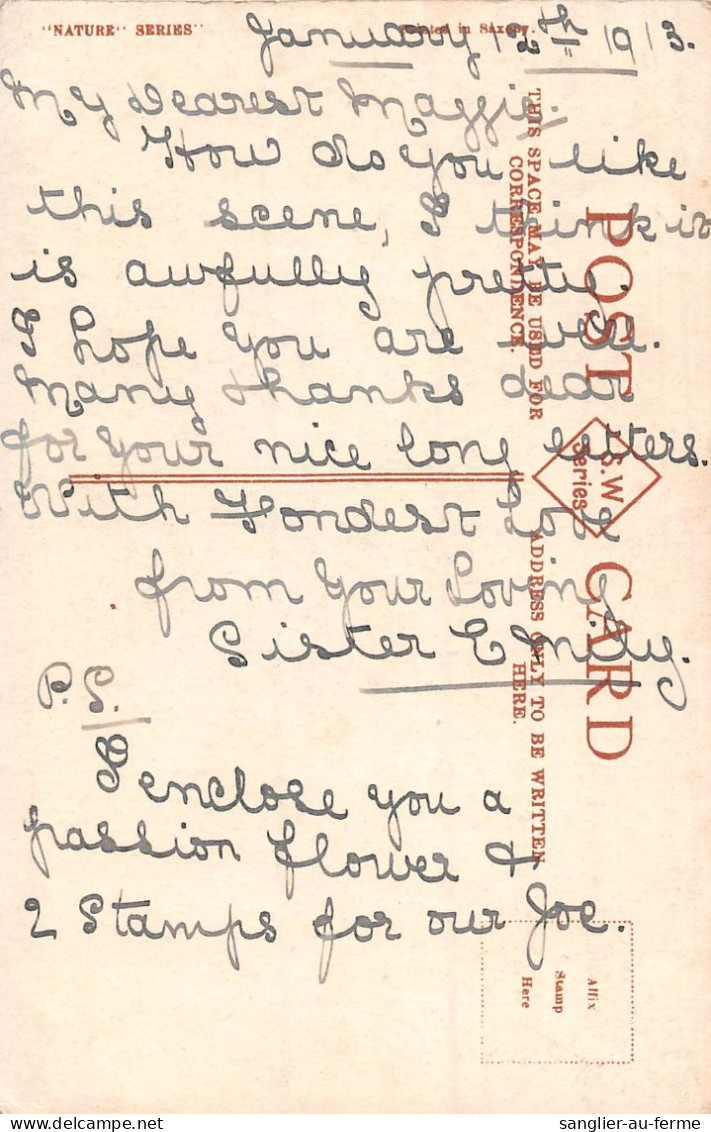 "NATURE" SERIES"
Printed in Saxony.
January 12th 1913.
My Dearest Maggie.
How do you like
this scene, I think it
is awfully pretty.
I hope you are well.
Many thanks dear
for your nice long letters.
With Fondest Love
from Your Loving
Sister Emily.
P.S.
I enclose you a
passion flower &
2 Stamps for our Joe.
THIS SPACE MAY BE USED FOR
CORRESPONDENCE.
POST CARD
S.W
Series
ADDRESS ONLY TO BE WRITTEN
HERE.
Affix
Stamp
Here
sanglier-au-ferme